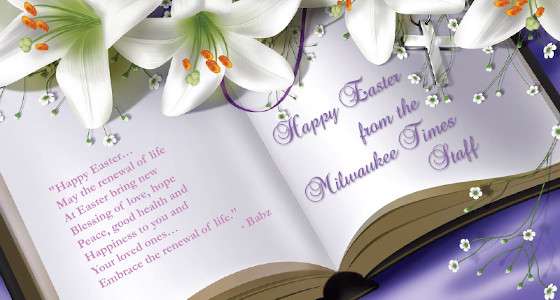 "Happy Easter...
May the renewal of life
At Easter bring new
Blessing of love, hope
Peace, good health and
Happiness to you and
Your loved ones...
Embrace the renewal of life."
- Babz
Happy Easter
from the
Milwaukee Times
Staff